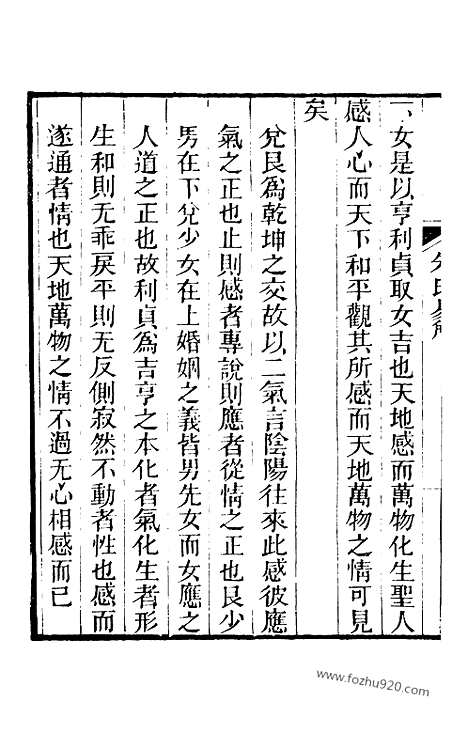 下女是以亨利貞取女吉也天地感而萬物化生聖人
感人心而天下和平觀其所感而天地萬物之情可見
矣
兌艮為乾坤之交故以二氣言陰陽往來此感彼應
氣之正也止則感者專說則應者從情之正也艮少
男在下兌少女在上婚姻之義皆男先女而女應之
人道之正也故利貞為吉亨之本化者氣化生者形
生和則无乖戾平則无反側寂然不動者性也感而
遂通者情也天地萬物之情不過无心相感而已
www.fozhu920.com